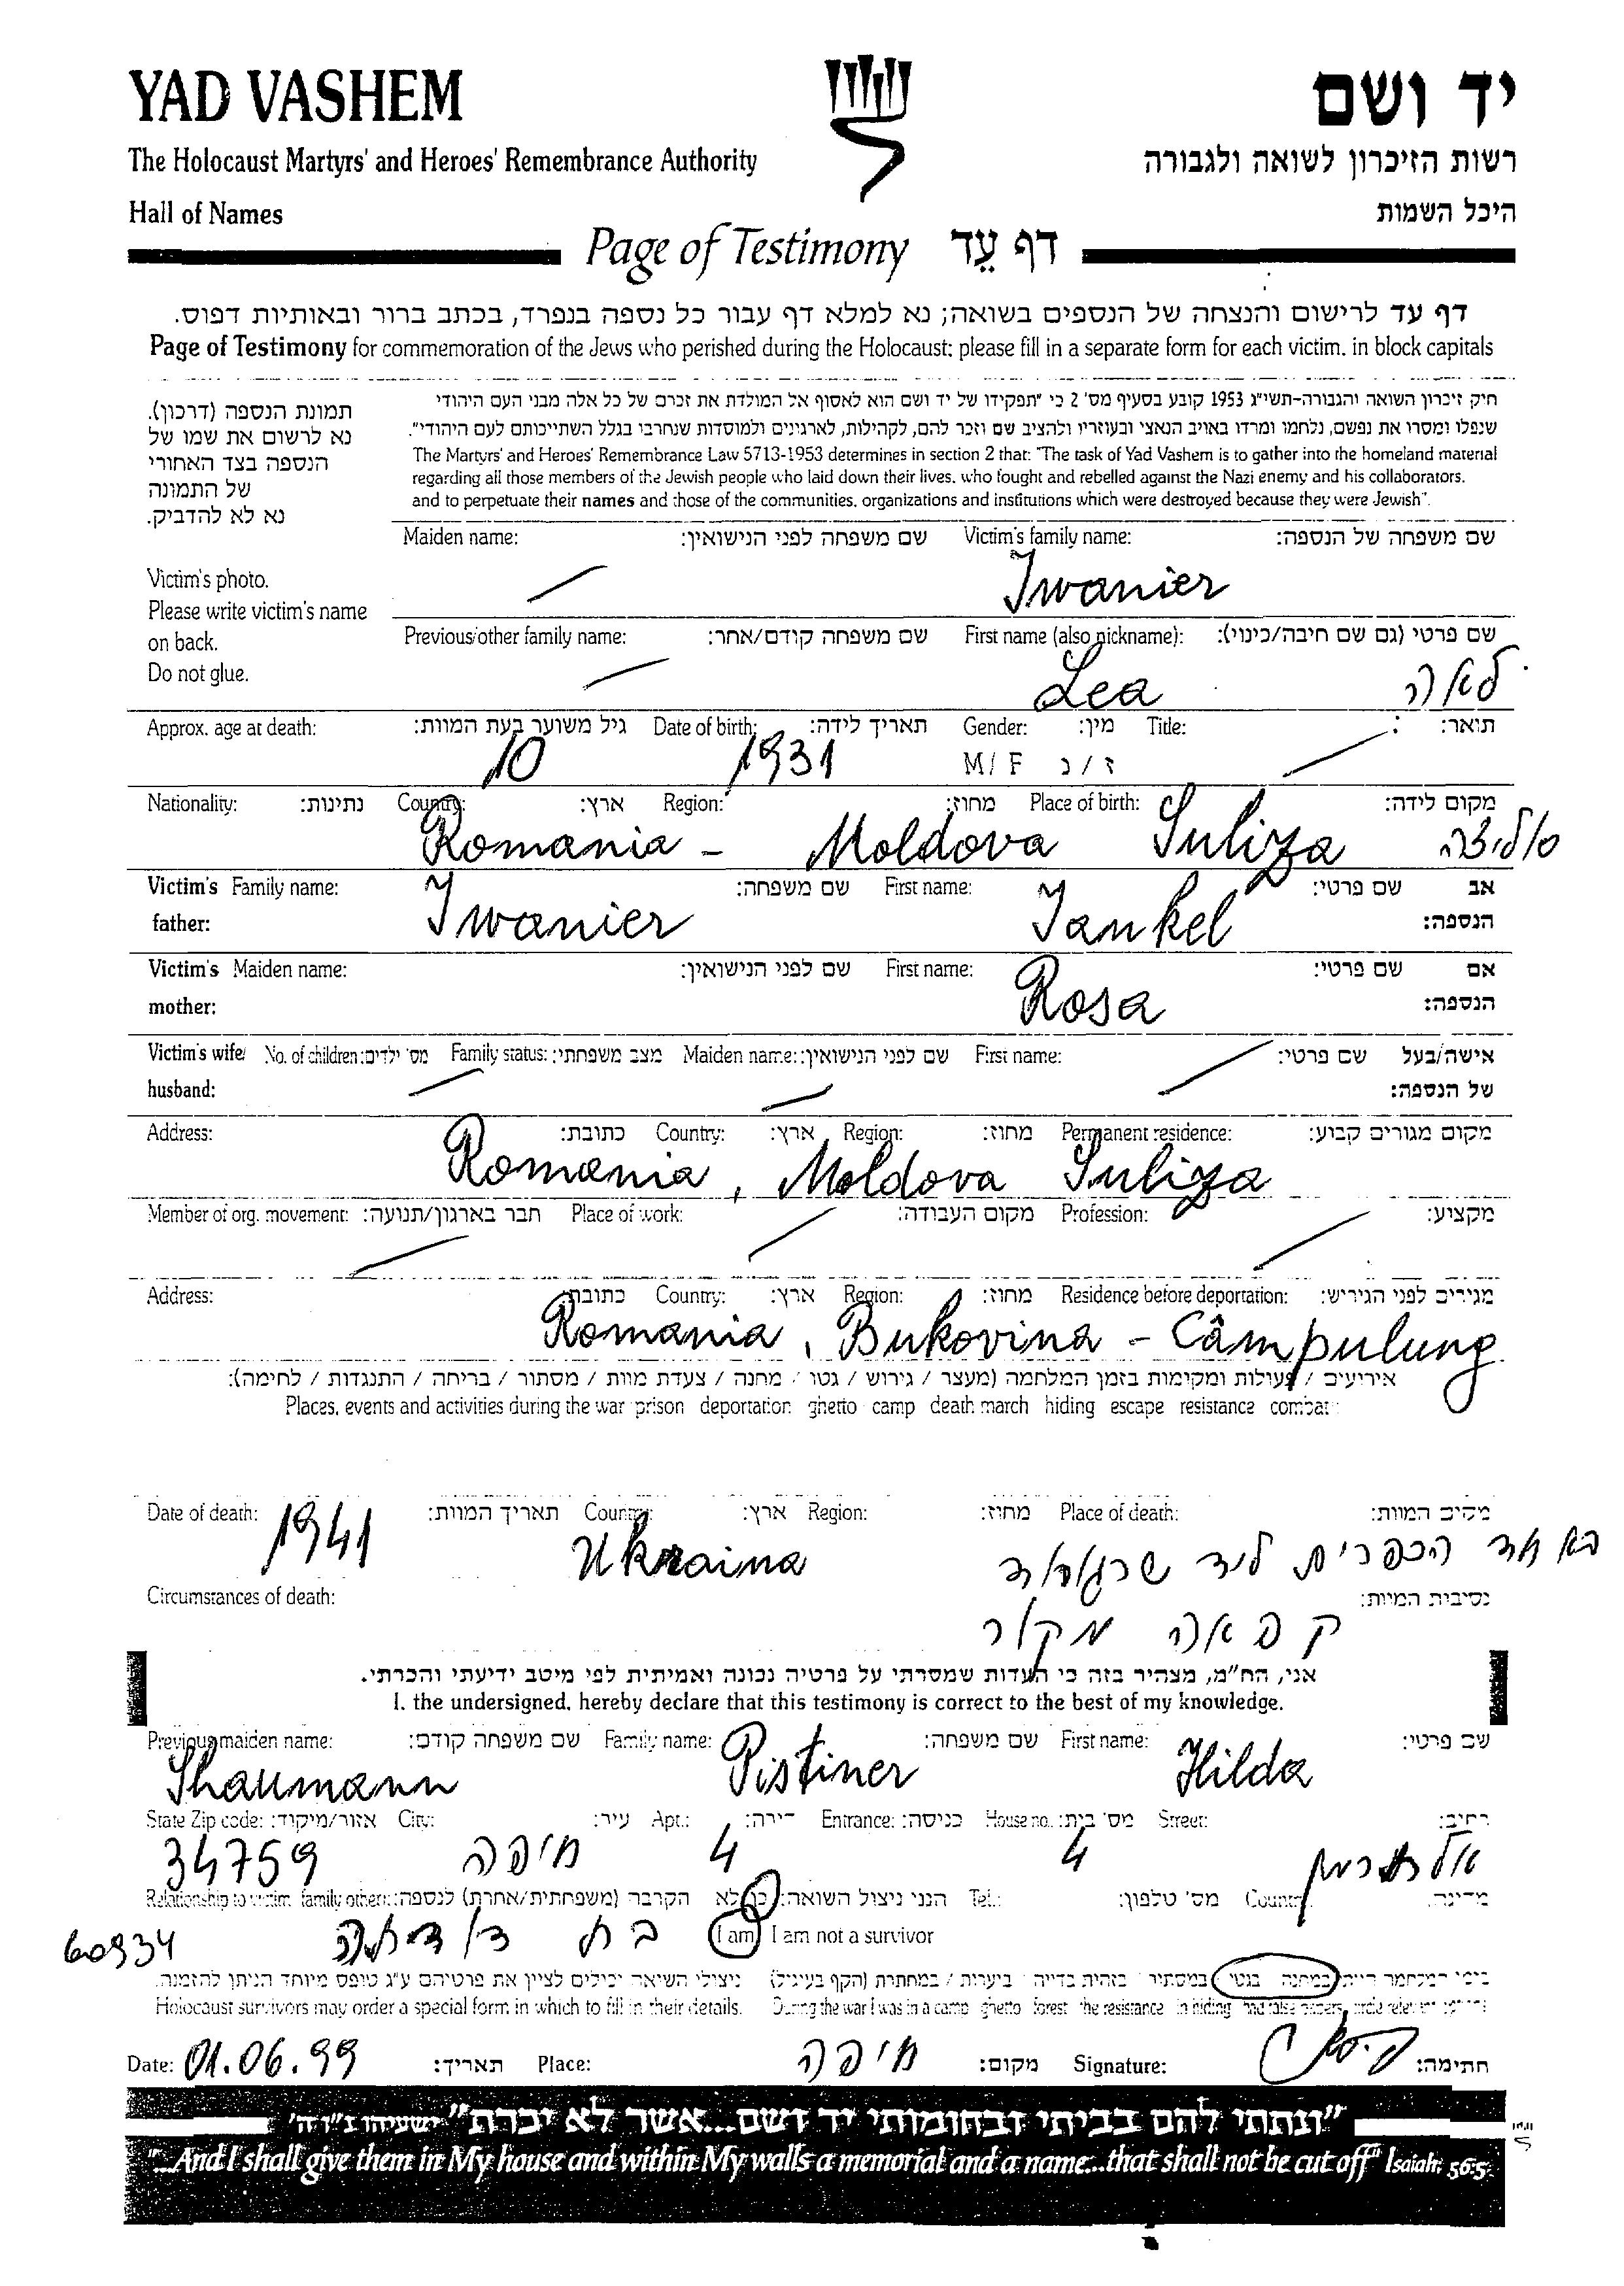 YAD VASHEM יד ושם
The Holocaust Martyrs' and Heroes' Remembrance Authority רשות הזיכרון לשואה ולגבורה
Hall of Names היכל השמות
Page of Testimony דף עֵד
דף עד לרישום והנצחה של הנספים בשואה; נא למלא דף עבור כל נספה בנפרד, בכתב ברור ובאותיות דפוס.
Page of Testimony for commemoration of the Jews who perished during the Holocaust: please fill in a separate form for each victim. in block capitals
תמונת הנספה (דרכון).
נא לרשום את שמו של
הנספה בצד האחורי
של התמונה
נא לא להדביק.
Victim's photo.
Please write victim's name
on back.
Do not glue.
חיק זיכרון השואה והגבורה-תשי"ג 1953 קובע בסעיף מס' 2 כי "תפקידו של יד ושם הוא לאסוף אל המולדת את זכרם של כל אלה מבני העם היהודי
שנפלו ומסרו את נפשם, נלחמו ומרדו באויב הנאצי ובעוזריו ולהציב שם וזכר להם, לקהילות, לארגונים ולמוסדות שנחרבו בגלל השתייכותם לעם היהודי".
The Martyrs' and Heroes' Remembrance Law 5713-1953 determines in section 2 that: "The task of Yad Vashem is to gather into the homeland material
regarding all those members of the Jewish people who laid down their lives. who fought and rebelled against the Nazi enemy and his collaborators.
and to perpetuate their names and those of the communities, organizations and institutions which were destroyed because they were Jewish".
Maiden name: שם משפחה לפני הנישואין: Victim's family name: שם משפחה של הנספה:
Iwanier
Previous/other family name: שם משפחה קודם/אחר: First name (also nickname): שם פרטי (גם שם חיבה/כינוי):
Lea לאה
Approx. age at death: גיל משוער בעת המוות: Date of birth: תאריך לידה: Gender: מין: Title: תואר:
10 1931 M/F ז/נ
Nationality: נתינות: Country: ארץ: Region: מחוז: Place of birth: מקום לידה:
Romania - Moldova Suliza סוליצה
Victim's Family name: שם משפחה: First name: שם פרטי: אב
father: Iwanier Iankel הנספה:
Victim's Maiden name: שם לפני הנישואין: First name: שם פרטי: אם
mother: Rosa הנספה:
Victim's wife/ No. of children: מס' ילדים: Family status: מצב משפחתי: Maiden name: שם לפני הנישואין: First name: שם פרטי: אישה/בעל
husband: של הנספה:
Address: כתובת: Country: ארץ: Region: מחוז: Permanent residence: מקום מגורים קבוע:
Romania, Moldova Suliza
Member of org. movement: חבר בארגון/תנועה: Place of work: מקום העבודה: Profession: מקציע:
Address: כתובת: Country: ארץ: Region: מחוז: Residence before deportation: מגורים לפני הגירוש:
Romania, Bukovina - Câmpulung
אירועים / פעולות ומקומות בזמן המלחמה (מעצר / גירוש / גטו / מחנה / צעדת מוות / מסתור / בריחה / התנגדות / לחימה):
Places, events and activities during the war prison deportation ghetto camp death march hiding escape resistance combat :
Date of death: תאריך המוות: Country: ארץ: Region: מחוז: Place of death: מקום המוות:
1941 Ukraina באחד הכפרים ליד שרגורוד
Circumstances of death: נסיבות המוות:
קפאה מקור
אני, הח"מ, מצהיר בזה כי העדות שמסרתי על פרטיה נכונה ואמיתית לפי מיטב ידיעתי והכרתי.
I. the undersigned, hereby declare that this testimony is correct to the best of my knowledge.
Previous maiden name: שם משפחה קודם: Family name: שם משפחה: First name: שם פרטי:
Shaumann Pistiner Hilda
State Zip code: אזור/מיקוד: City: עיר: Apt.: דירה: Entrance: כניסה: House no.: מס' בית: Street: רחוב:
34759 חיפה 4 4
Relationship to victim family other: הקרבה (משפחתית/אחרת) לנספה: הנני ניצול השואה: כן לא Tel.: מס' טלפון: Country מדינה
60934 בת דודתה I am I am not a survivor
ניצולי השואה יכולים לציין את פרטיהם ע"ג טופס מיוחד הניתן להזמנה. בימי המלחמה הייתי במחנה בגטו במסתור בזהות בדויה ביערות / במחתרת (הקף בעיגול)
Holocaust survivors may order a special form in which to fill in their details. During the war I was in a camp ghetto forest the resistance in hiding had false papers, circle relevant
Date: 01.06.99 תאריך: Place: חיפה מקום: Signature: חתימה:
"ונתתי להם בביתי ובחומותי יד ושם...אשר לא יכרת" ישעיהו נ"ו ה'
"...And I shall give them in My house and within My walls a memorial and a name...that shall not be cut off" Isaiah: 56:5